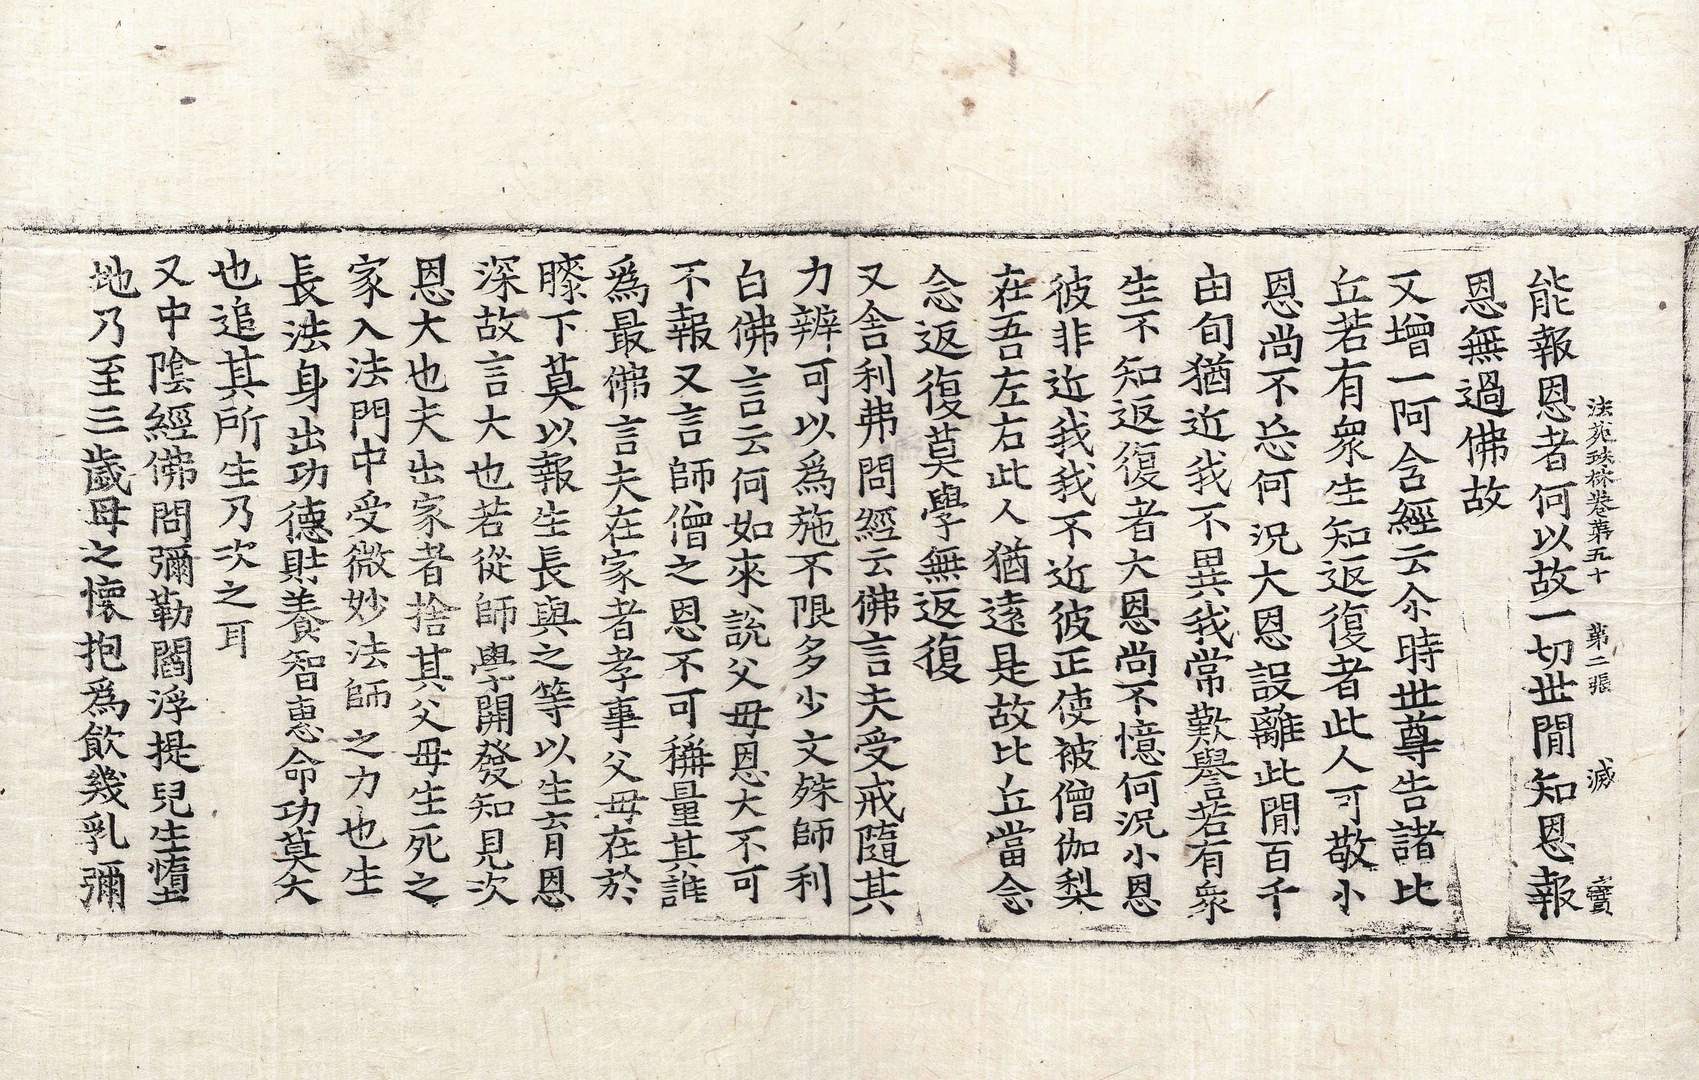 法苑珠林卷第五十 第二張 滅 寶
能報恩者何以故一切世間知恩報
恩無過佛故
又增一阿含經云尒時世尊告諸比
丘若有衆生知返復者此人可敬小
恩尚不忘何況大恩設離此間百千
由旬猶近我不異我常歎譽若有衆
生不知返復者大恩尚不憶何況小恩
彼非近我我不近彼正使被僧伽梨
在吾左右此人猶遠是故比丘當念
念返復莫學無返復
又舍利弗問經云佛言夫受戒隨其
力辨可以爲施不限多少文殊師利
白佛言云何如來說父母恩大不可
不報又言師僧之恩不可稱量其誰
爲最佛言夫在家者孝事父母在於
膝下莫以報生長與之等以生育恩
深故言大也若從師學開發知見次
恩大也夫出家者捨其父母生死之
家入法門中受微妙法師之力也生
長法身出功德財養智惠命功莫大
也追其所生乃次之耳
又中陰經佛問彌勒閻浮提兒生墮
地乃至三歲母之懷抱爲飲幾乳彌